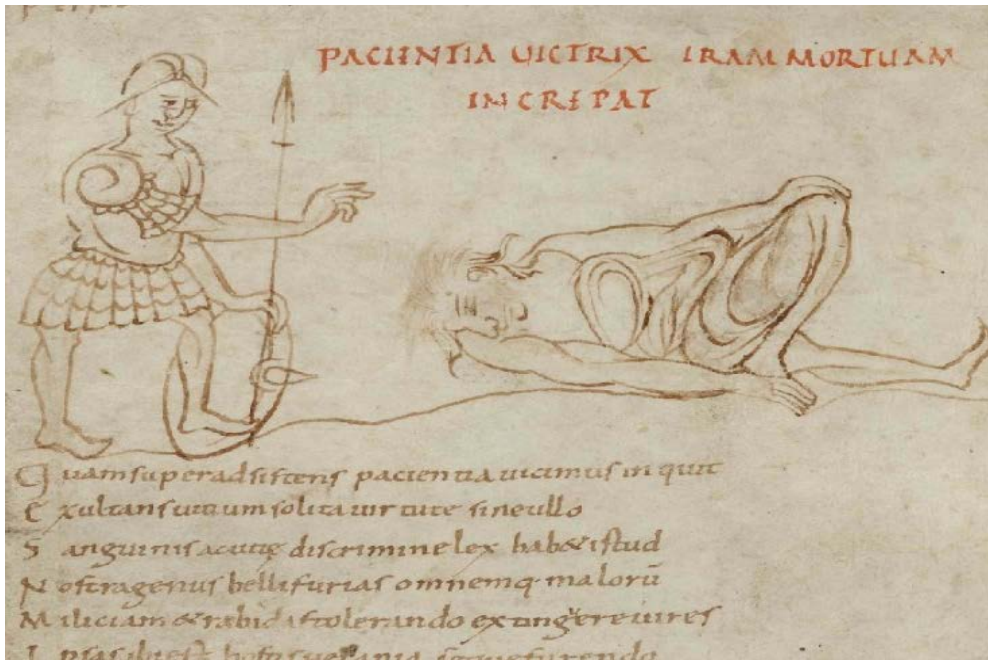 PACIENTIA UICTRIX IRAM MORTUAM
INCREPAT
Quam super adsistens pacientia uicimus inquit
Exultans uitium solita uirtute sine ullo
Sanguinis ac uitę discrimine lex hab& istud
Nostra genus belli furias omnemq· malorū
Miliciam & rabidas tolerando extingᵘere uires
hostis uesania seque furendo